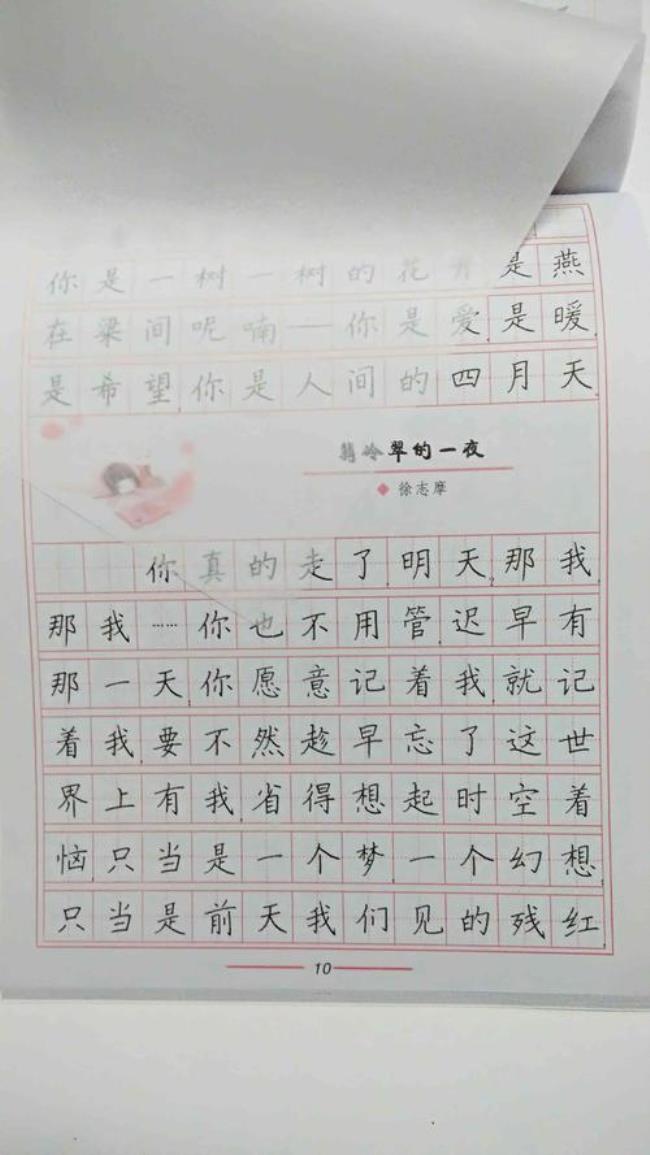 你是一树一树的花开是燕
在梁间呢喃——你是爱,是暖,
是希望,你是人间的四月天
翡冷翠的一夜
◆ 徐志摩
你真的走了明天,那我,
那我……你也不用管,迟早有
那一天,你愿意记着我,就记
着我,要不然趁早忘了这世
界上有我,省得想起时空着
恼,只当是一个梦,一个幻想,
只当是前天我们见的残红,
10